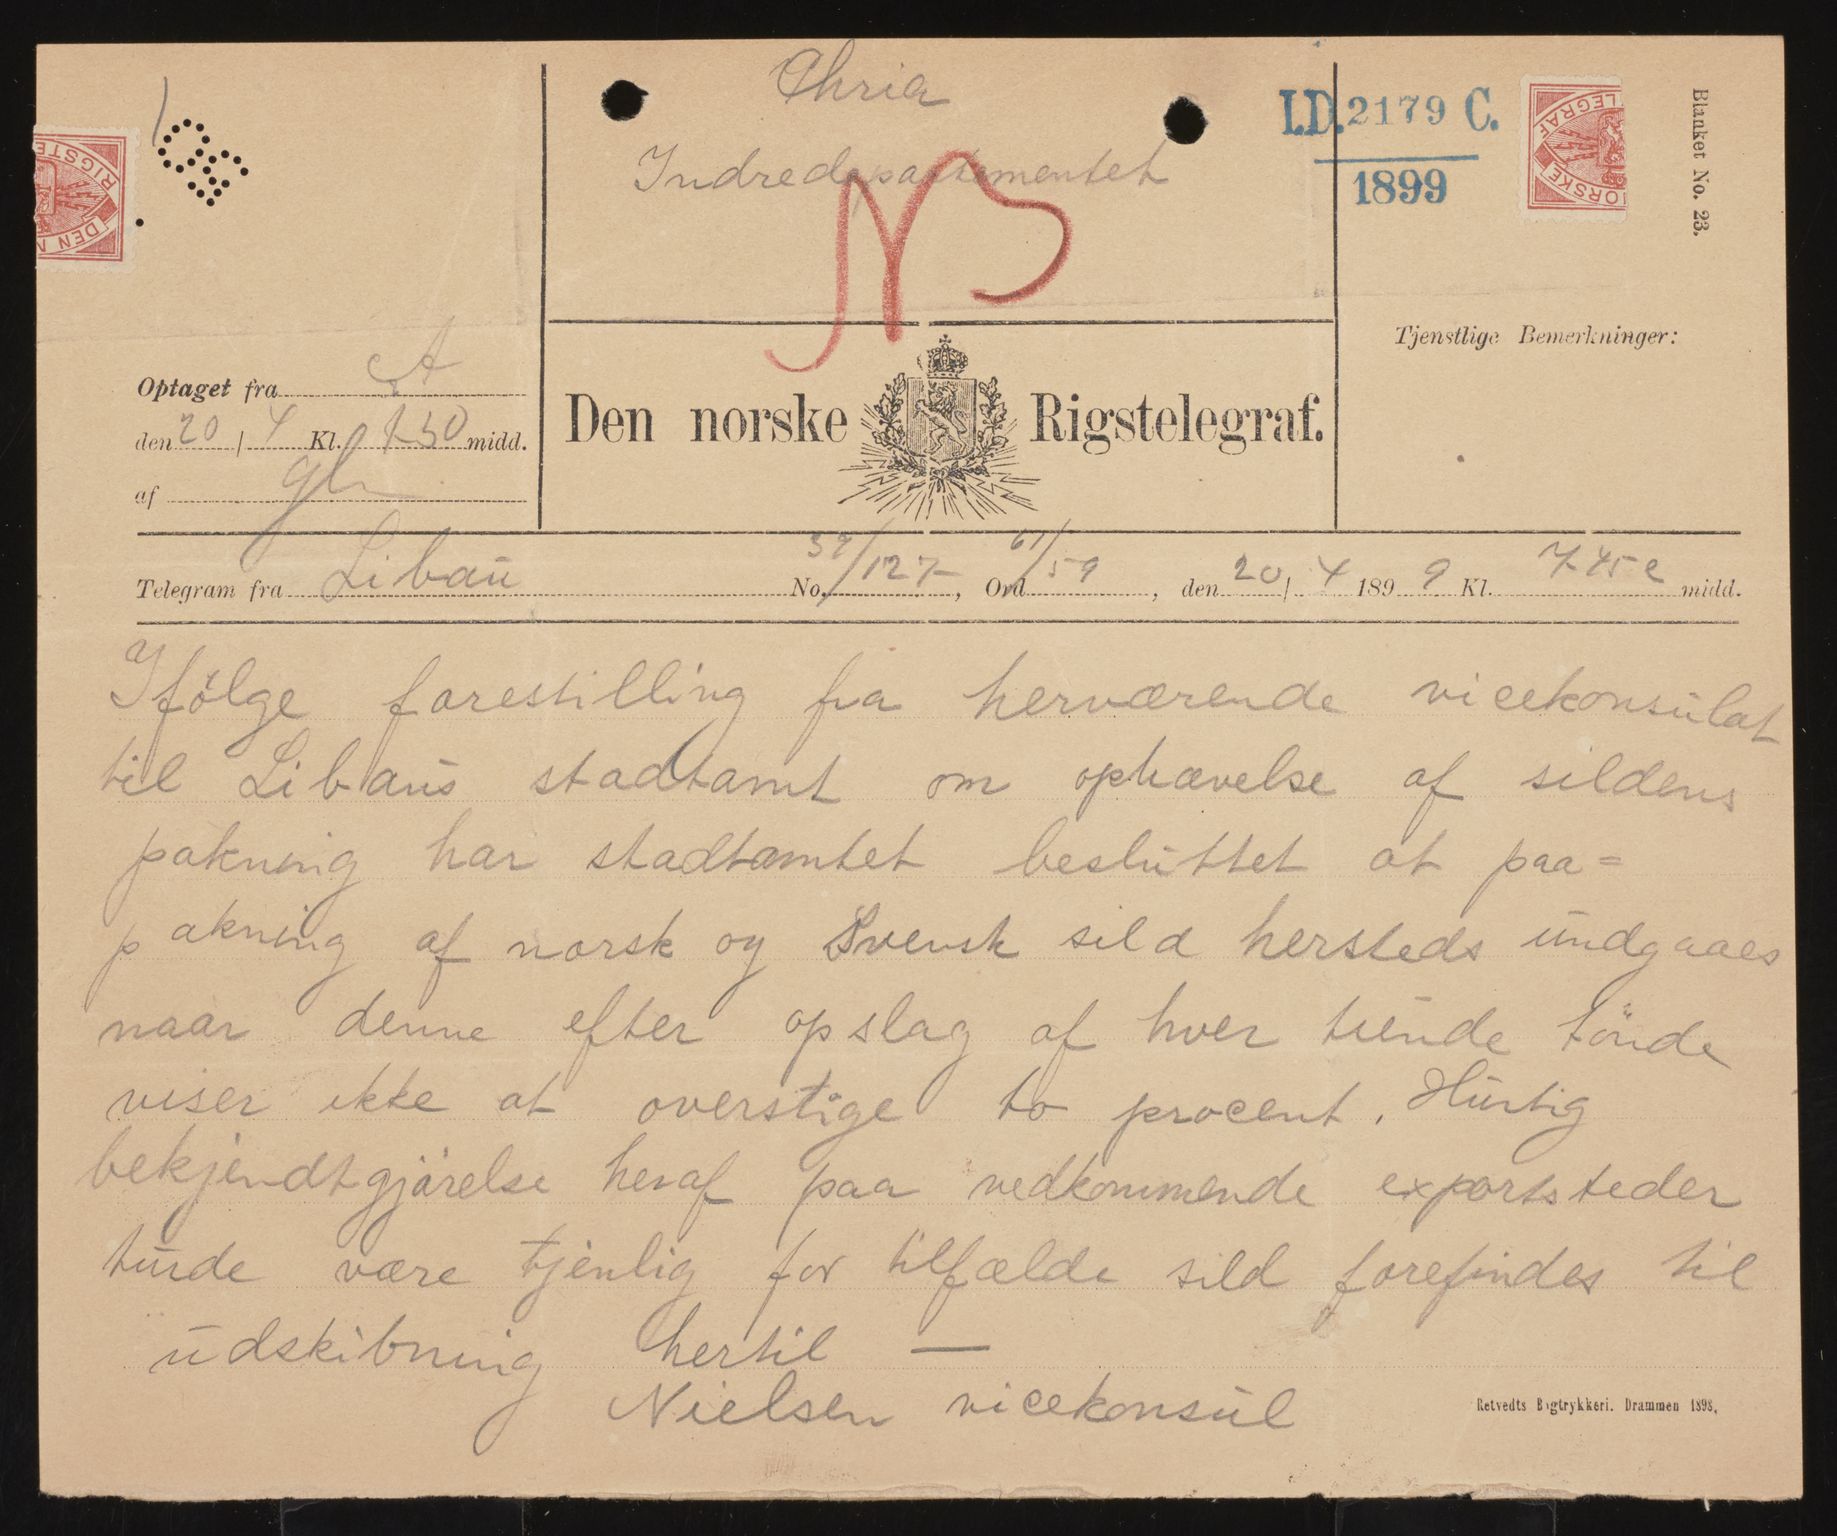 Chria
Indredepartementet
I.D. 2179 C.
1899
Blanket No. 23.
NB
Tjenstlige Bemerkninger:
Optaget fra A
den 20 / 4 Kl. 8 50 midd.
af
Den norske Rigstelegraf.
Telegram fra Libau No. 34/127, Ord 61/59, den 20 / 4 1899 Kl. 7 45 e midd.
Ifölge forestilling fra herværende vicekonsulat
til Libaus stadtamt om ophævelse af sildens
pakning har stadtamtet besluttet at paa=
pakning af norsk og Svensk sild hersteds undgaaes
naar denne efter opslag af hver tiende tönde
viser ikke at overstige to procent. Hurtig
bekjendtgjörelse heraf paa vedkommende exportsteder
turde være tjenlig for tilfælde sild forefindes til
udskibning hertil —
Nielsen vicekonsul
Retvedts Bogtrykkeri. Drammen 1898.